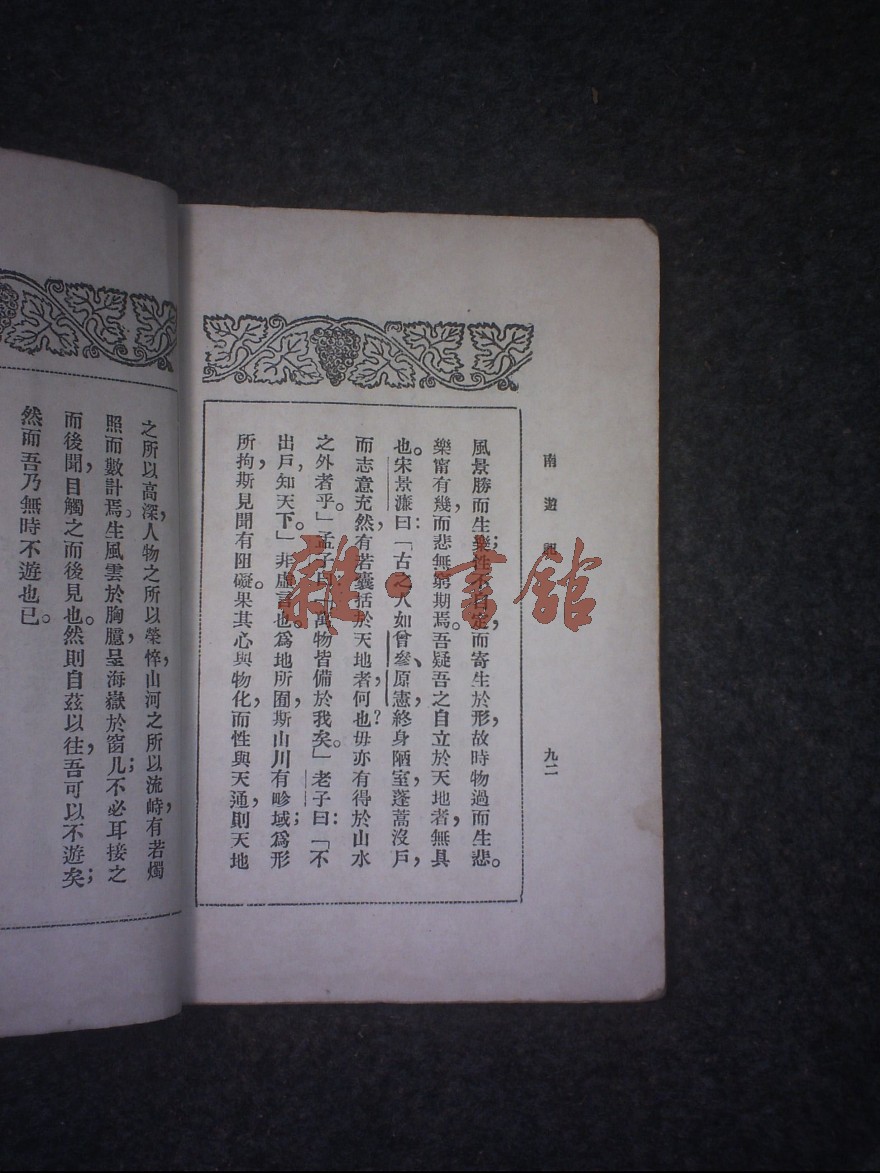 南遊記
九二
風景勝而生樂;性不自定,而寄生於形,故時物過而生悲。
樂甯有幾,而悲無窮期焉。吾疑吾之自立於天地者,無具
也。宋景濂曰:「古之人如曾參、原憲,終身陋室,蓬蒿沒戶,
而志意充然,有若囊括於天地者,何也?毋亦有得於山水
之外者乎。」孟子曰:「萬物皆備於我矣。」老子曰:「不
出戶,知天下。」非虛言也。爲地所囿,斯山川有畛域;爲形
所拘,斯見聞有阻礙。果其心與物化,而性與天通,則天地
之所以高深,人物之所以榮悴,山河之所以流峙,有若燭
照而數計焉。生風雲於胸臆,呈海嶽於窗几;不必耳接之
而後聞,目觸之而後見也。然則自茲以往,吾可以不遊矣;
然而吾乃無時不遊也已。
雜·書館